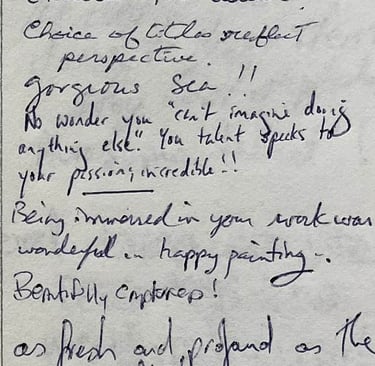 Choice of titles reflect
perspective.
gorgeous Sea!!
No wonder you "can't imagine doing
anything else." You talent speaks to
your passion, incredible!!
Being immersed in your work was
wonderful in happy painting -.
Beautifully captured!
as fresh and profound as the